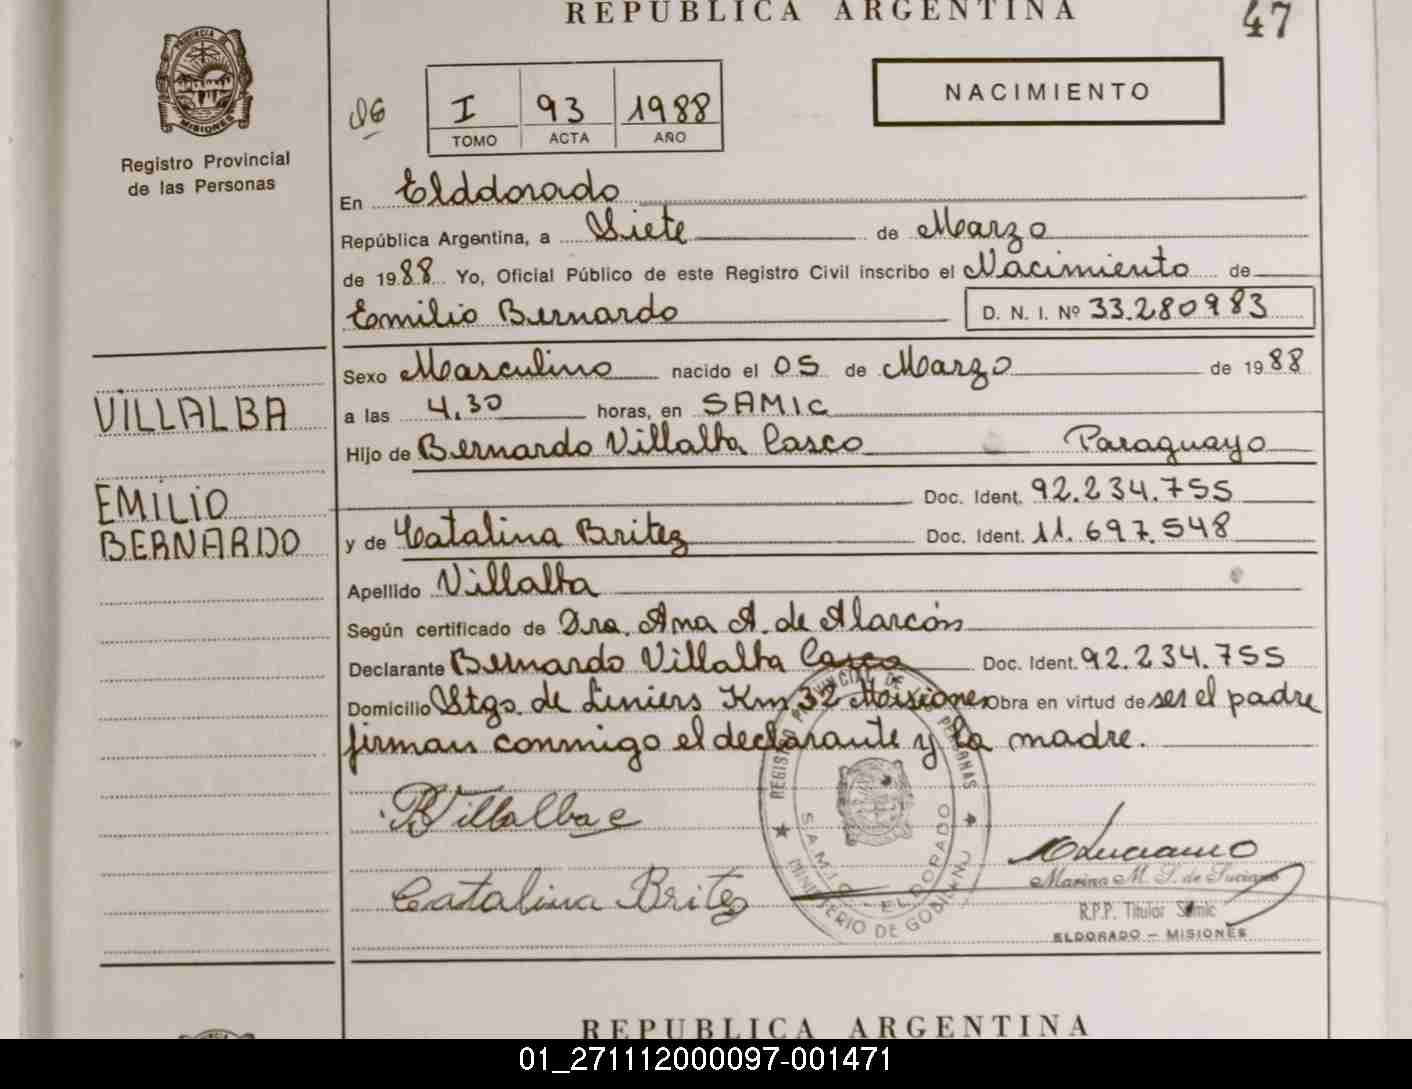 REPUBLICA ARGENTINA
47
PROVINCIA
MISIONES
Registro Provincial
de las Personas
I 93 1988
TOMO ACTA AÑO
NACIMIENTO
En Elddorado
República Argentina, a Siete de Marzo
de 1988 Yo, Oficial Público de este Registro Civil inscribo el Nacimiento de
Emilio Bernardo D. N. I. Nº 33.280983
Sexo Masculino nacido el 05 de Marzo de 1988
VILLALBA
a las 4.30 horas, en SAMIC
Hijo de Bernardo Villalba Casco Paraguayo
EMILIO
BERNARDO
Doc. Ident. 92.234.755
y de Catalina Britez Doc. Ident. 11.697.548
Apellido Villalba
Según certificado de Dra. Ana A. de Alarcón
Declarante Bernardo Villalba Casco Doc. Ident. 92.234.755
Domicilio Stgo. de Liniers Km 32 Misiones Obra en virtud de ser el padre
firman conmigo el declarante y la madre.
BVillalba c
Catalina Britez
REGISTRO PROVINCIAL DE LAS PERSONAS
SAMIC - ELDORADO
MINISTERIO DE GOBIERNO
Marina M. S. de Luciano
R.P.P. Titular Samic
ELDORADO - MISIONES
REPUBLICA ARGENTINA
01_271112000097-001471